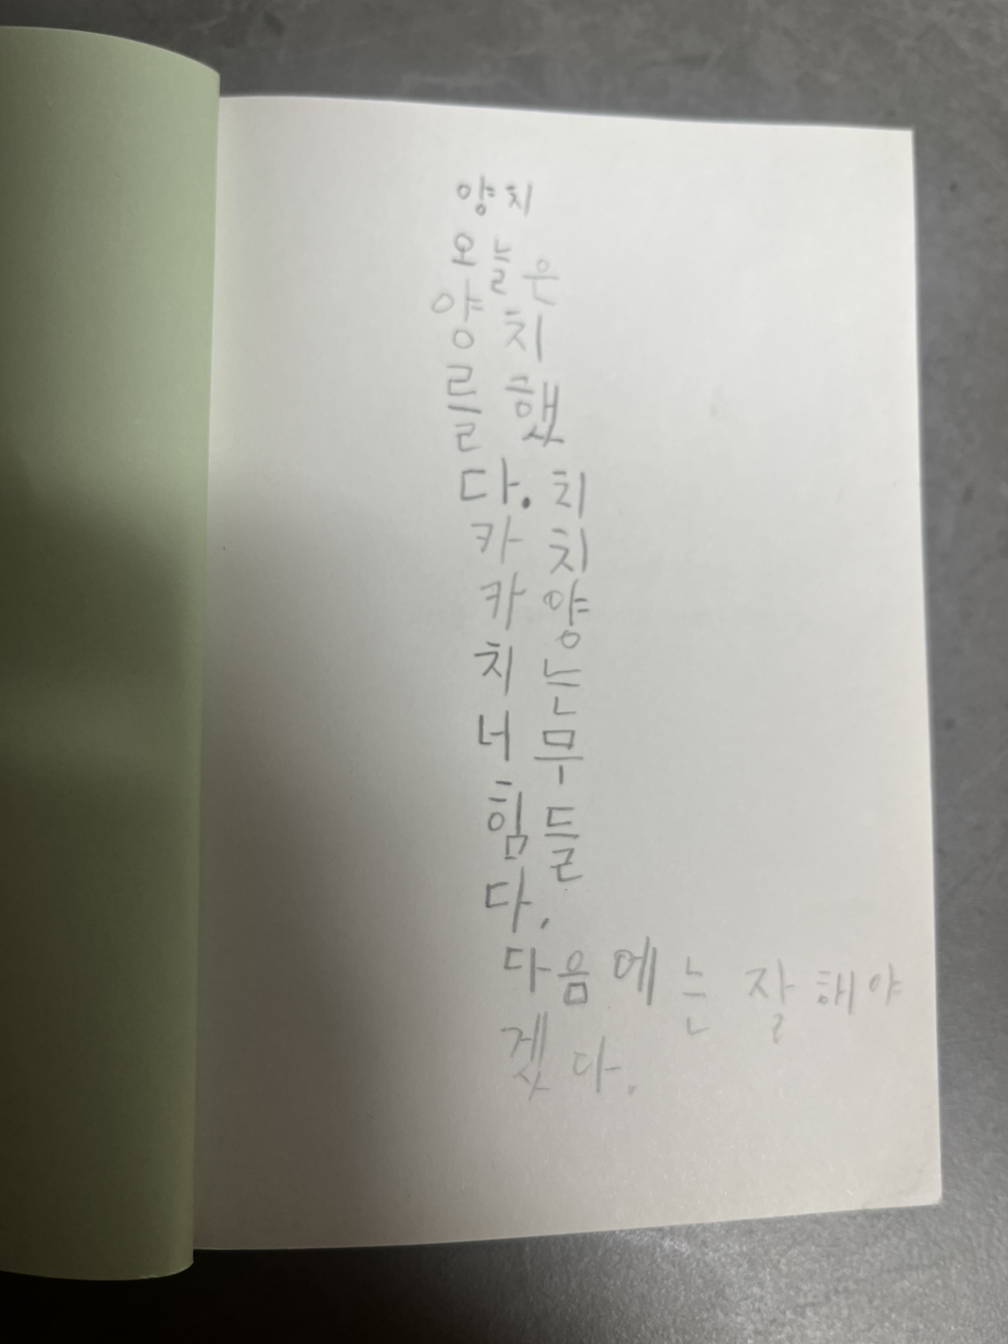 양치
오늘은
양치
를 했
다. 치
카 치
카 양
치 는
너 무
힘 들
다.
다음에는 잘 해야
겠다.